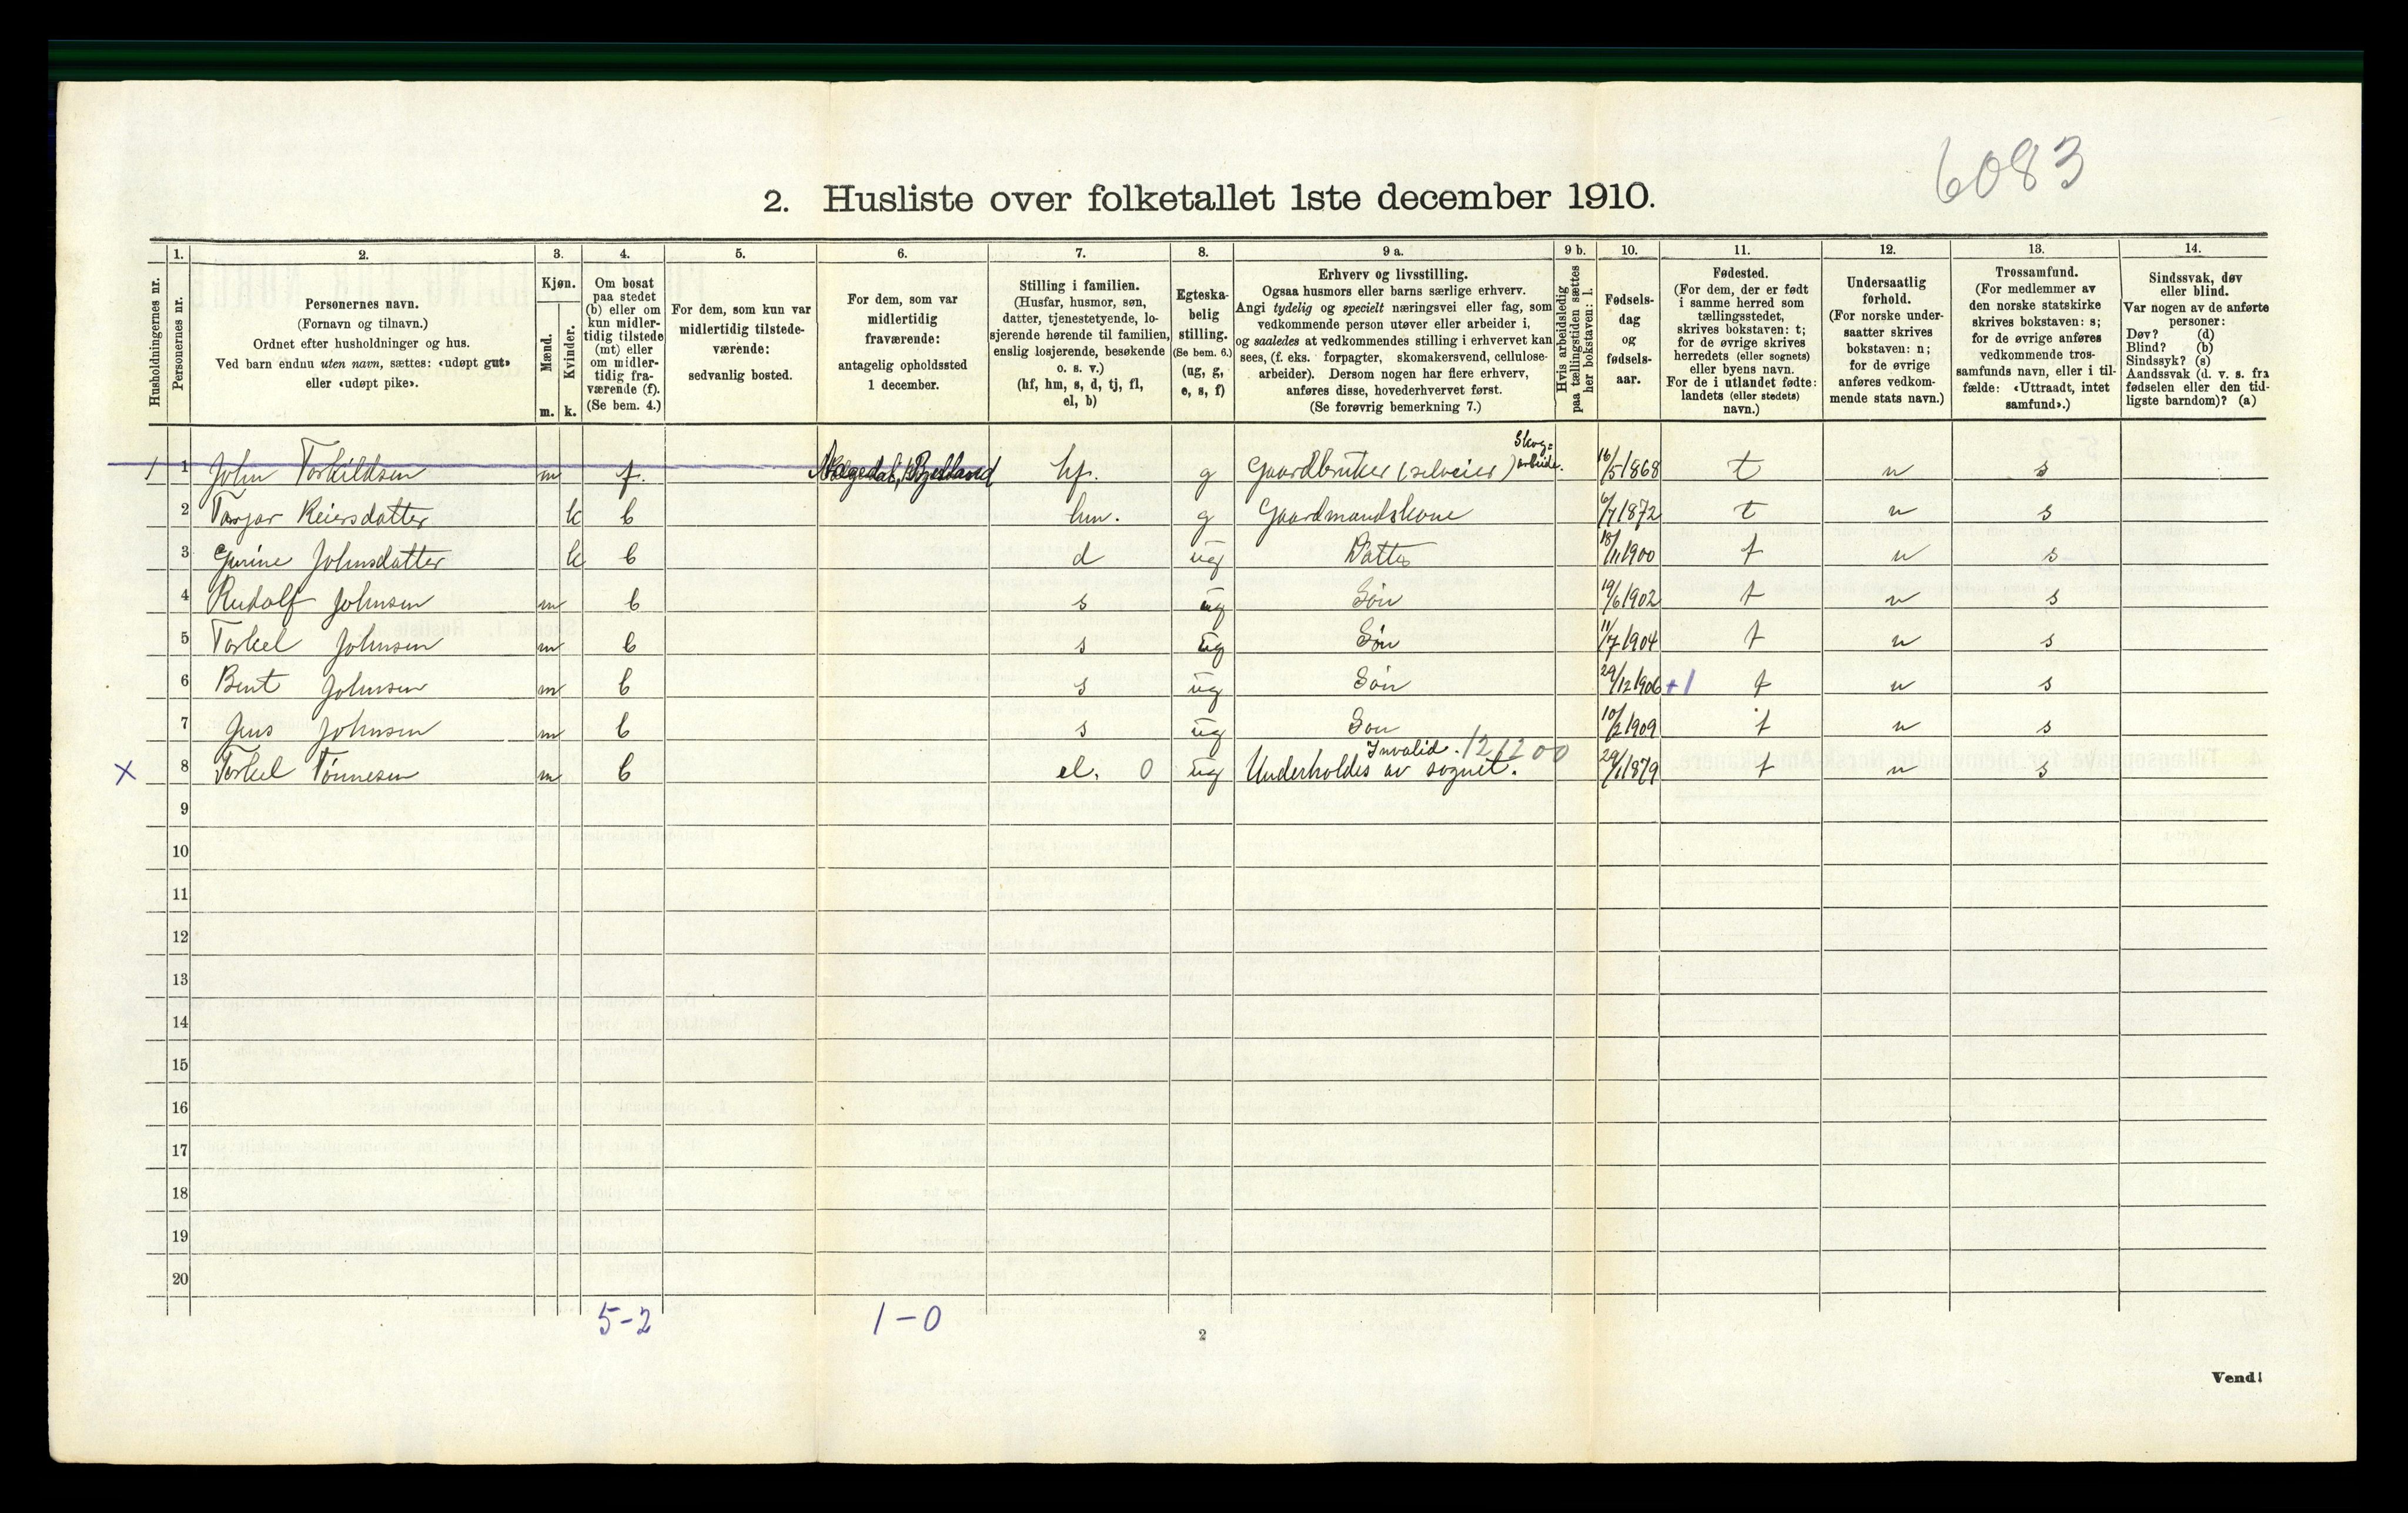 6083
2. Husliste over folketallet 1ste december 1910.
1. 2. 3. 4. 5. 6. 7. 8. 9 a. 9 b. 10. 11. 12. 13. 14.
Husholdningernes nr.
Personernes nr.
Personernes navn.
(Fornavn og tilnavn.)
Ordnet efter husholdninger og hus.
Ved barn endnu uten navn, sættes: «udøpt gut»
eller «udøpt pike».
Kjøn.
Mænd.
Kvinder.
m. k.
Om bosat
paa stedet
(b) eller om
kun midler-
tidig tilstede
(mt) eller
om midler-
tidig fra-
værende (f).
(Se bem. 4.)
For dem, som kun var
midlertidig tilstede-
værende:
sedvanlig bosted.
For dem, som var
midlertidig
fraværende:
antagelig opholdssted
1 december.
Stilling i familien.
(Husfar, husmor, søn,
datter, tjenestetyende, lo-
sjerende hørende til familien,
enslig losjerende, besøkende
o. s. v.)
(hf, hm, s, d, tj, fl,
el, b)
Egteska-
belig
stilling.
(Se bem. 6.)
(ug, g,
e, s, f)
Erhverv og livsstilling.
Ogsaa husmors eller barns særlige erhverv.
Angi tydelig og specielt næringsvei eller fag, som
vedkommende person utøver eller arbeider i,
og saaledes at vedkommendes stilling i erhvervet kan
sees, (f. eks. forpagter, skomakersvend, cellulose-
arbeider). Dersom nogen har flere erhverv,
anføres disse, hovederhvervet først.
(Se forøvrig bemerkning 7.)
Hvis arbeidsledig
paa tællingstiden sættes
her bokstaven: l.
Fødsels-
dag
og
fødsels-
aar.
Fødested.
(For dem, der er født
i samme herred som
tællingsstedet,
skrives bokstaven: t;
for de øvrige skrives
herredets (eller sognets)
eller byens navn.
For de i utlandet fødte:
landets (eller stedets)
navn.)
Undersaatlig
forhold.
(For norske under-
saatter skrives
bokstaven: n;
for de øvrige
anføres vedkom-
mende stats navn.)
Trossamfund.
(For medlemmer av
den norske statskirke
skrives bokstaven: s;
for de øvrige anføres
vedkommende tros-
samfunds navn, eller i til-
fælde: «Uttraadt, intet
samfund».)
Sindssvak, døv
eller blind.
Var nogen av de anførte
personer:
Døv? (d)
Blind? (b)
Sindssyk? (s)
Aandssvak (d. v. s. fra
fødselen eller den tid-
ligste barndom)? (a)
1 1 John Torkildsen m f. hf. g Gaardbruker (selveier) Skog=arbeide. 16/5 1868 t n s
2 Reiersdatter k b hm. g Gaardmandskone 6/7 1872 t n s
3 Gurine Johnsdatter k b d ug Datter 18/11 1900 t n s
4 Rudolf Johnsen m b s ug Søn 19/6 1902 t n s
5 Torkel Johnsen m b s ug Søn 11/7 1904 t n s
6 Bent Johnsen m b s ug Søn 29/12 1906 +1 t n s
7 Jens Johnsen m b s ug Søn 10/2 1909 t n s
Invalid. 121200
X 8 Torkel Tönnesen m b el. 0 ug Underholdes av sognet. 29/1 1879 t n s
9
10
11
12
13
14
15
16
17
18
19
20
5-2 1-0
2
Vend!